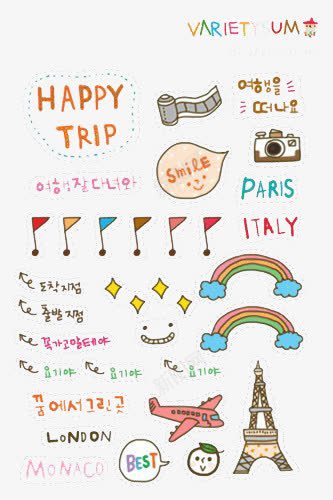 VARIETYUM
HAPPY
TRIP
여행을
떠나요
SMiLE
여행잘다녀와
PARIS
ITALY
도착지점
출발지점
꼭가고말테야
여기야 여기야 여기야
꿈에서그린곳
LONDON
MONACO
BEST